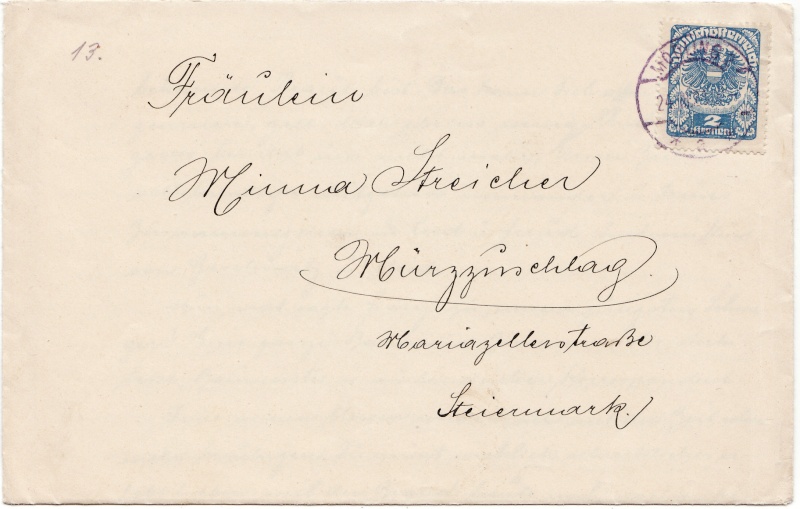 13.
Deutschösterreich
2
Kronen
24
Fräulein
Minna Streicher
Mürzzuschlag.
Mariazellerstraße
Steiermark.